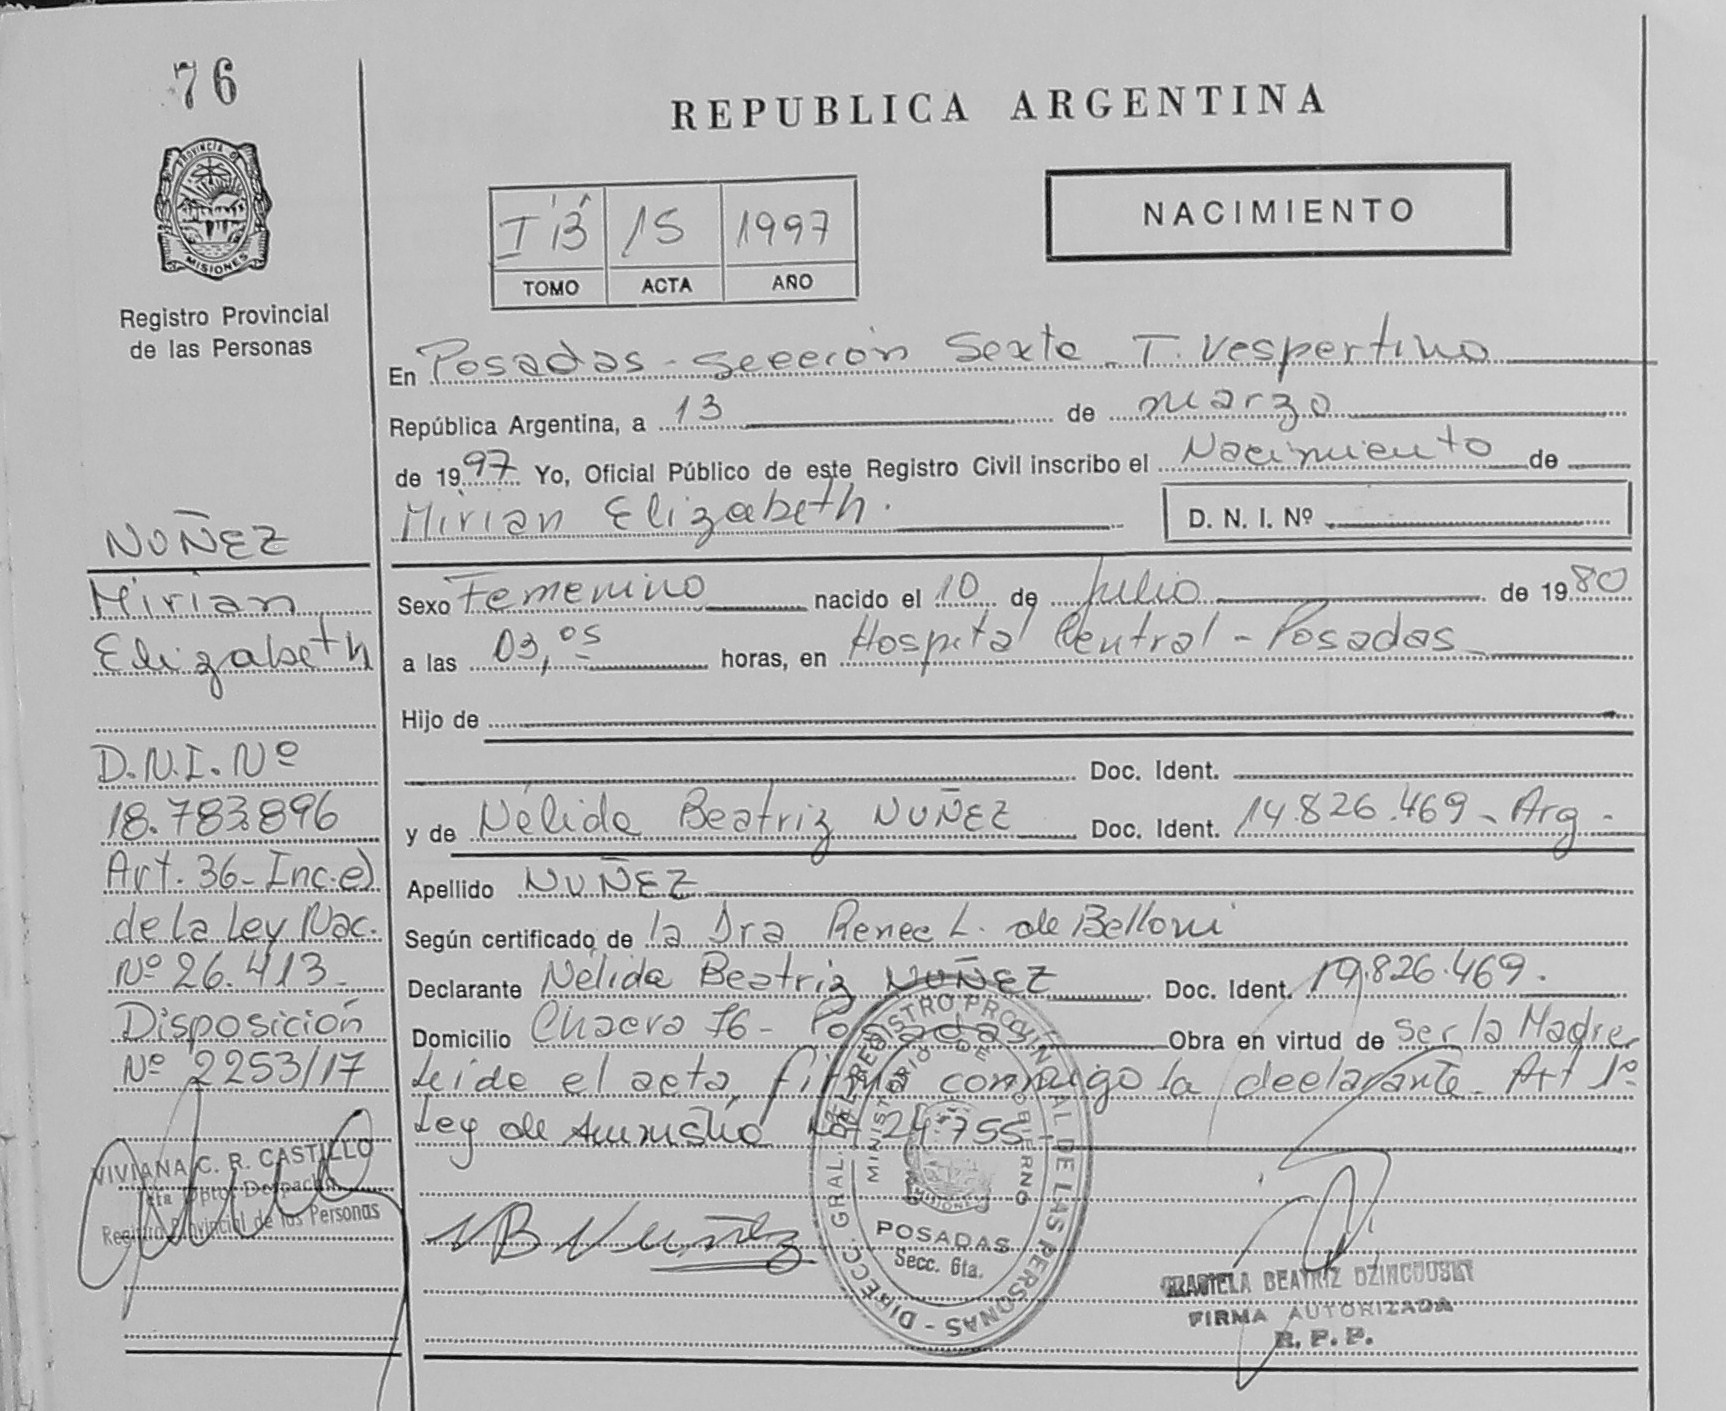 76
REPUBLICA ARGENTINA
PROVINCIA DE
MISIONES
Registro Provincial
de las Personas
15 1997
TOMO ACTA AÑO
NACIMIENTO
En Posadas - Sección Sexta - T. Vespertino
República Argentina, a 13 de marzo
de 1997 Yo, Oficial Público de este Registro Civil inscribo el Nacimiento de
Mirian Elizabeth.
D. N. I. Nº
Sexo Femenino nacido el 10 de Julio de 1980
a las 03,05 horas, en Hospital Central - Posadas
Hijo de
Doc. Ident.
y de Nélida Beatriz NUÑEZ Doc. Ident. 14.826.469 - Arg -
Apellido NUÑEZ
Según certificado de la Dra Renee L. de Belloni
Declarante Nélida Beatriz NUÑEZ Doc. Ident. 19.826.469.
Domicilio Chacra 76 - Posadas Obra en virtud de ser la Madre
Leída el acta, firma conmigo la declarante. Art 1º
Ley de Amnistía Nº 24755
NUÑEZ
Mirian
Elizabeth
D.N.I. Nº
18.783.896
Art. 36 - Inc. e)
de la Ley Nac.
Nº 26.413 -
Disposición
Nº 2253/17
VIVIANA C. R. CASTILLO
Dpto. Despacho
Registro Provincial de las Personas
NB Nuñez
DIRECC. GRAL. DEL REGISTRO PROVINCIAL DE LAS PERSONAS -
MINISTERIO DE GOBIERNO
MISIONES
POSADAS
Secc. 6ta.
GRACIELA BEATRIZ
FIRMA AUTORIZADA
R. P. P.